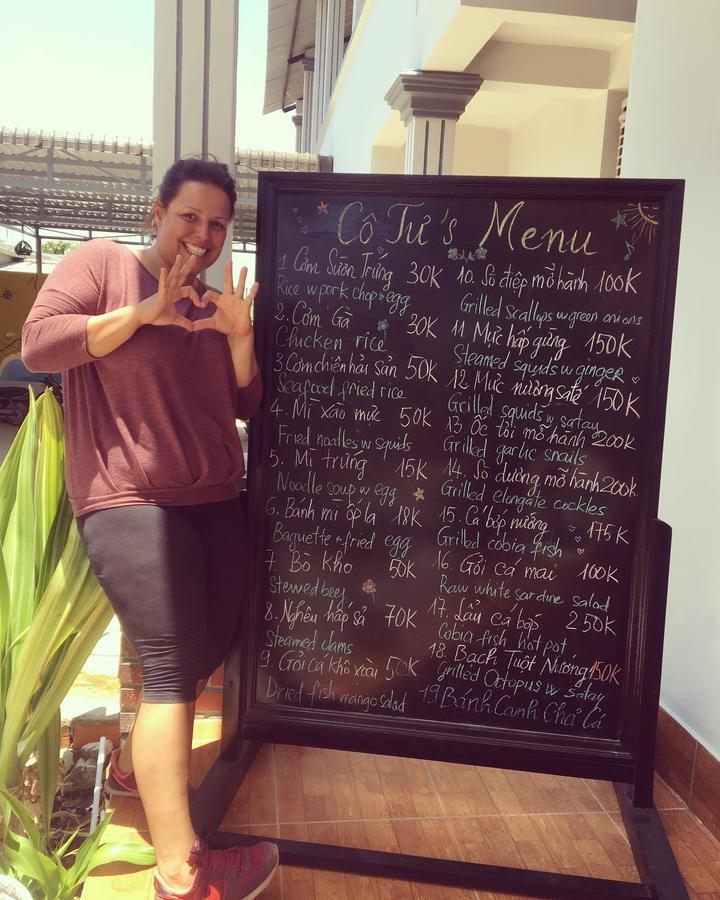 Cô Tư's Menu
1. Cơm Sườn Trứng 30K
Rice w pork chop + egg
2. Cơm Gà 30K
Chicken rice
3. Cơm chiên hải sản 50K
Seafood fried rice
4. Mì xào mực 50K
Fried noodles w squids
5. Mì trứng 15K
Noodle soup w egg
6. Bánh mì ốp la 18K
Baguette + fried egg
7. Bò kho 50K
Stewed beef
8. Nghêu hấp sả 70K
Steamed clams
9. Gỏi cá khô xoài 50K
Dried fish mango salad
10. Sò điệp mỡ hành 100K
Grilled scallops w green onions
11 Mực hấp gừng 150K
Steamed squids w ginger
12 Mực nướng saté 150K
Grilled squids w satay
13. Ốc tỏi mỡ hành 200K
Grilled garlic snails
14. Sò dương mỡ hành 200k
Grilled elongate cockles
15. Cá bớp nướng 175K
Grilled cobia fish
16. Gỏi cá mai 100K
Raw white sardine salad
17. Lẩu cá bớp 250K
Cobia fish hot pot
18. Bạch Tuột Nướng 150K
Grilled Octopus w satay
19 Bánh Canh Chả Cá